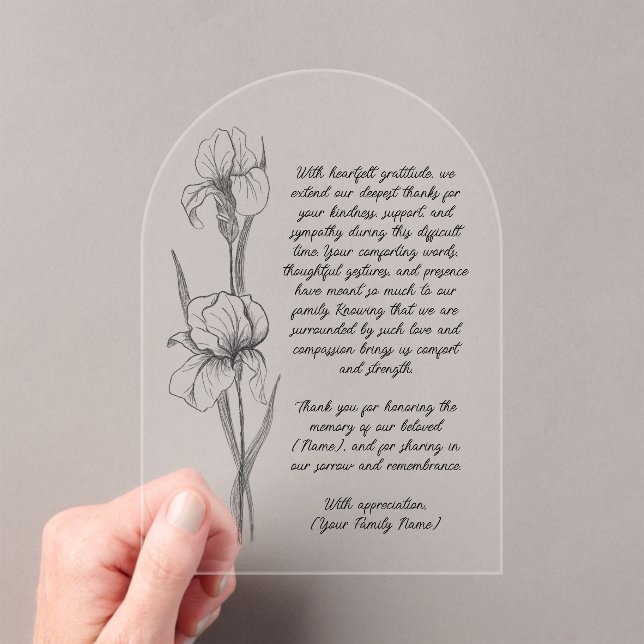 With heartfelt gratitude, we
extend our deepest thanks for
your kindness, support, and
sympathy during this difficult
time. Your comforting words,
thoughtful gestures, and presence
have meant so much to our
family. Knowing that we are
surrounded by such love and
compassion brings us comfort
and strength.
Thank you for honoring the
memory of our beloved
[Name], and for sharing in
our sorrow and remembrance.
With appreciation,
[Your Family Name]